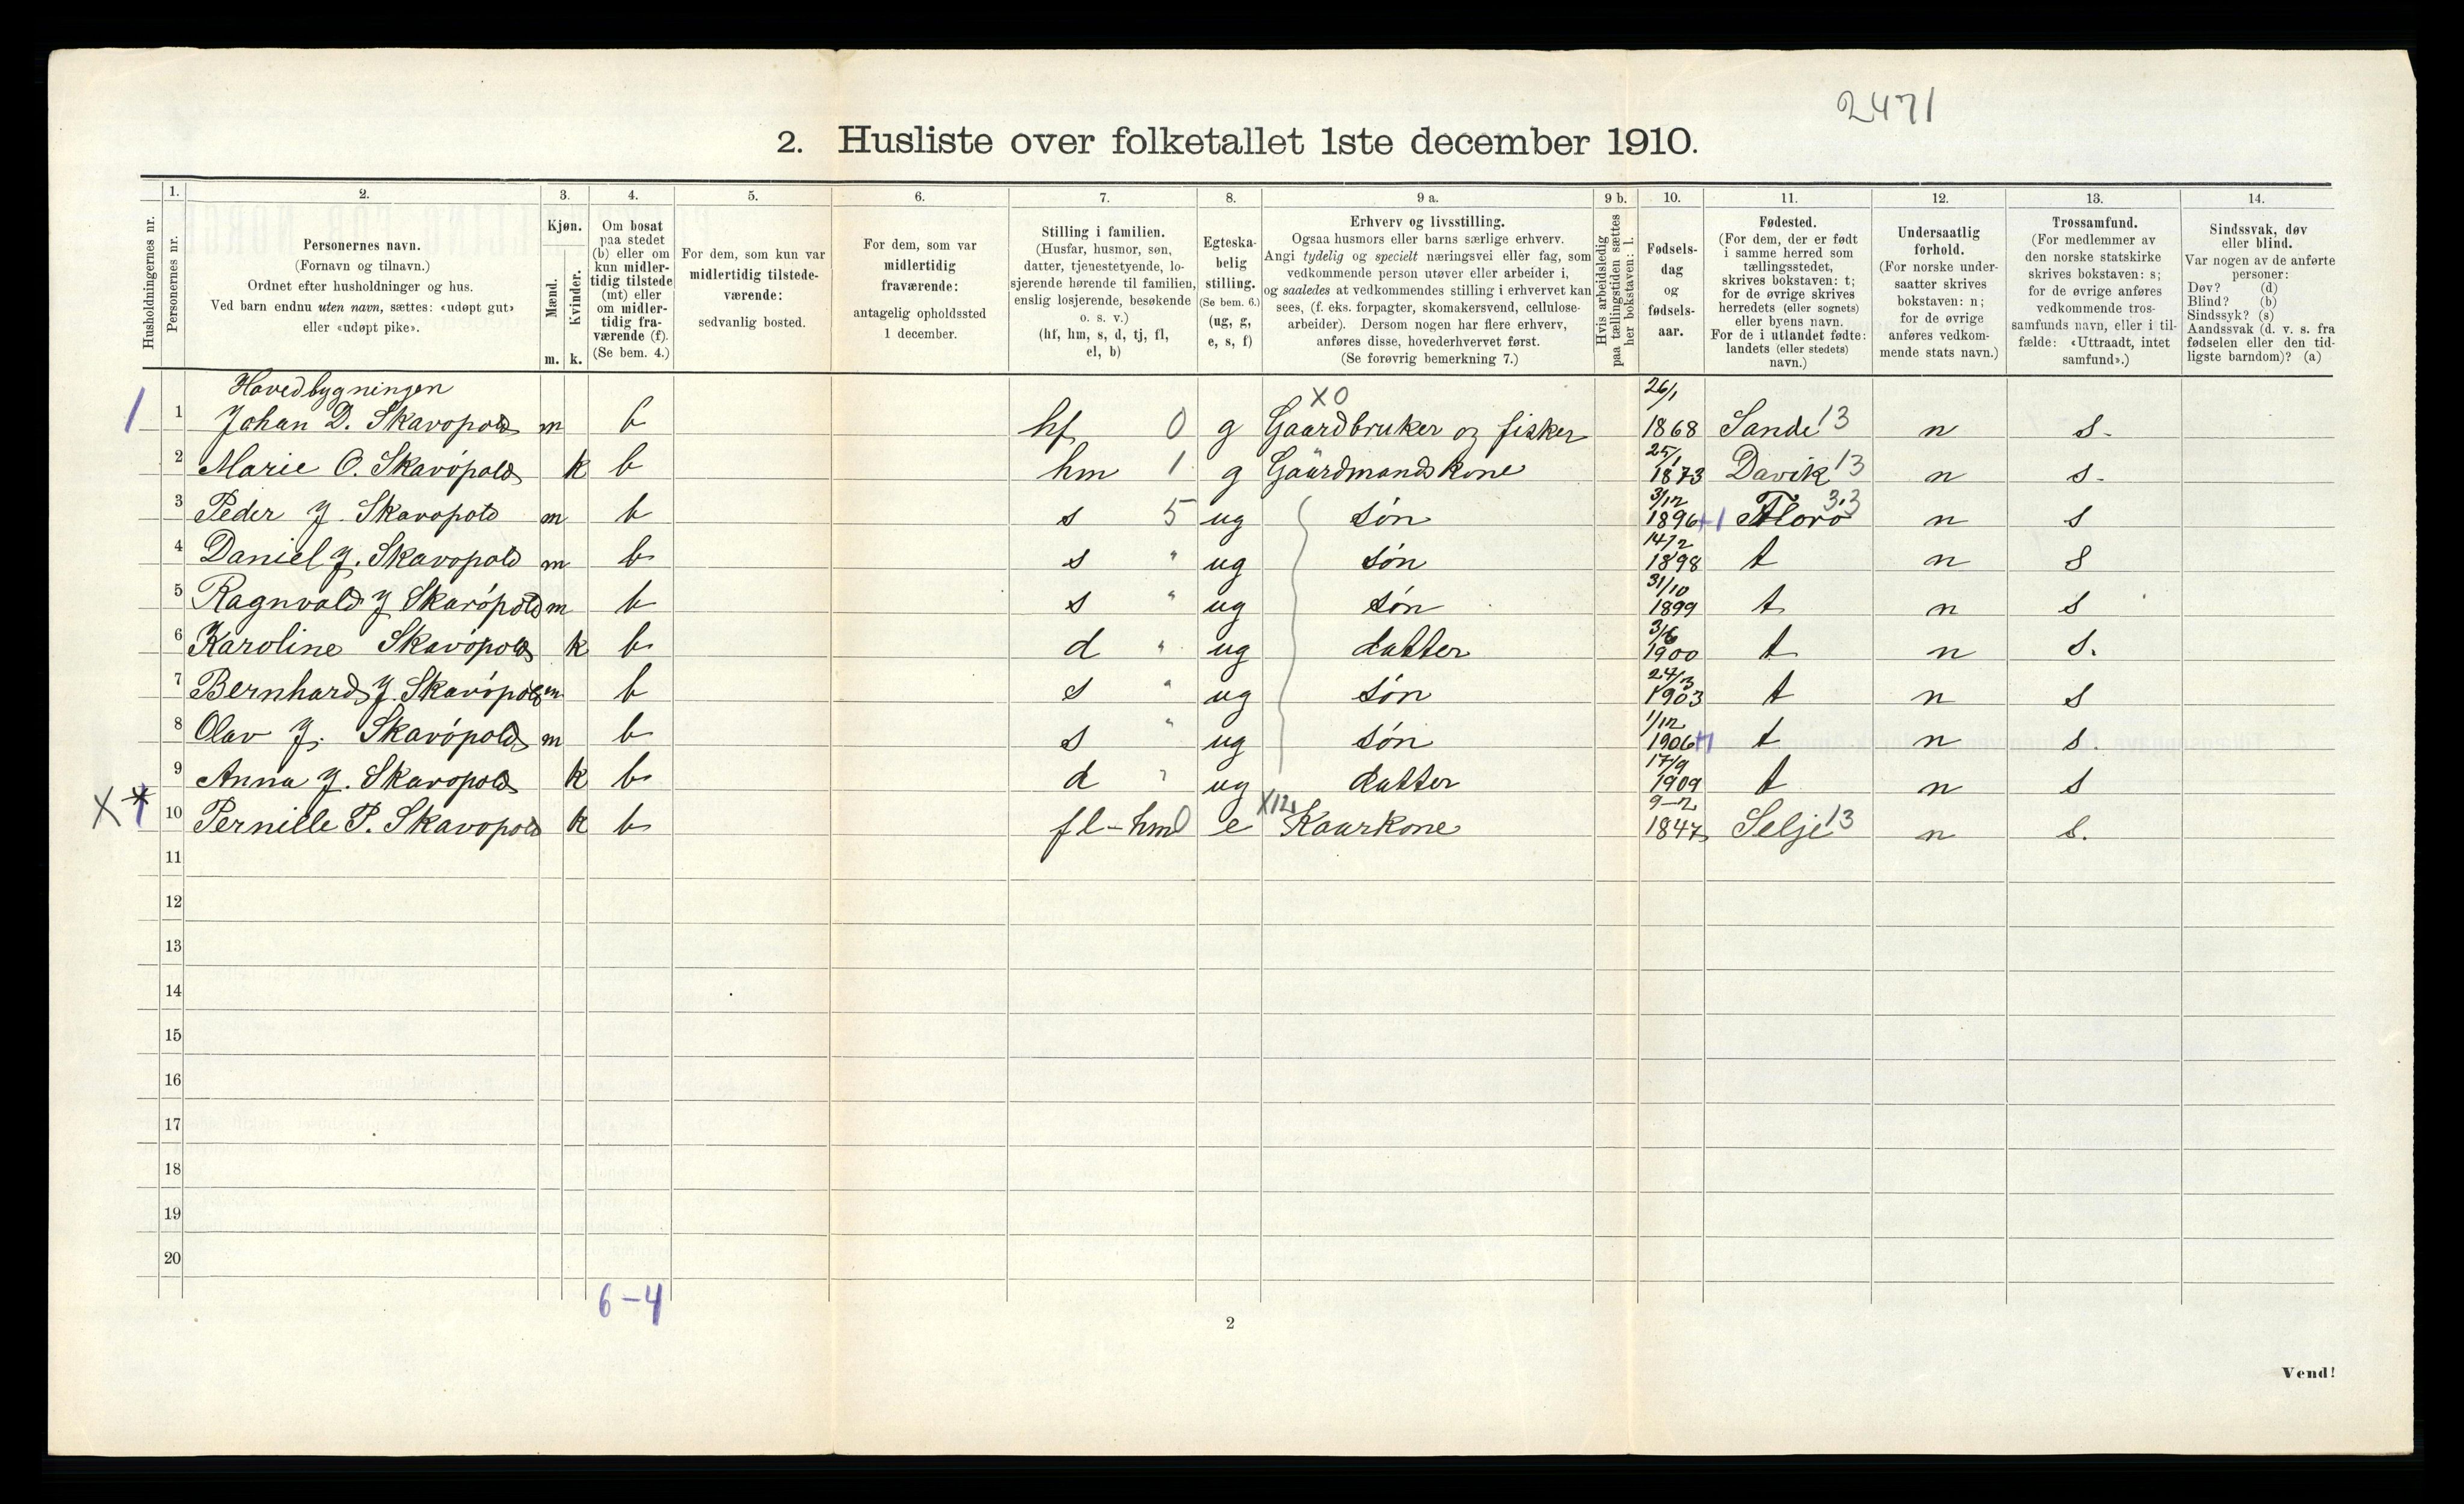 2471
2. Husliste over folketallet 1ste december 1910.
Husholdningernes nr.
1. Personernes nr.
2. Personernes navn. (Fornavn og tilnavn.) Ordnet efter husholdninger og hus. Ved barn endnu uten navn, sættes: «udøpt gut» eller «udøpt pike».
3. Kjøn. Mænd. m. Kvinder. k.
4. Om bosat paa stedet (b) eller om kun midlertidig tilstede (mt) eller om midlertidig fraværende (f). (Se bem. 4.)
5. For dem, som kun var midlertidig tilstedeværende: sedvanlig bosted.
6. For dem, som var midlertidig fraværende: antagelig opholdssted 1 december.
7. Stilling i familien. (Husfar, husmor, søn, datter, tjenestetyende, losjerende hørende til familien, enslig losjerende, besøkende o. s. v.) (hf, hm, s, d, tj, fl, el, b)
8. Egteskabelig stilling. (Se bem. 6.) (ug, g, e, s, f)
9 a. Erhverv og livsstilling. Ogsaa husmors eller barns særlige erhverv. Angi tydelig og specielt næringsvei eller fag, som vedkommende person utøver eller arbeider i, og saaledes at vedkommendes stilling i erhvervet kan sees, (f. eks. forpagter, skomakersvend, cellulosearbeider). Dersom nogen har flere erhverv, anføres disse, hovederhvervet først. (Se forøvrig bemerkning 7.)
9 b. Hvis arbeidsledig paa tællingstiden sættes her bokstaven: l.
10. Fødselsdag og fødselsaar.
11. Fødested. (For dem, der er født i samme herred som tællingsstedet, skrives bokstaven: t; for de øvrige skrives herredets (eller sognets) eller byens navn. For de i utlandet fødte: landets (eller stedets) navn.)
12. Undersaatlig forhold. (For norske undersaatter skrives bokstaven: n; for de øvrige anføres vedkommende stats navn.)
13. Trossamfund. (For medlemmer av den norske statskirke skrives bokstaven: s; for de øvrige anføres vedkommende trossamfunds navn, eller i tilfælde: «Uttraadt, intet samfund».)
14. Sindssvak, døv eller blind. Var nogen av de anførte personer: Døv? (d) Blind? (b) Sindssyk? (s) Aandssvak (d. v. s. fra fødselen eller den tidligste barndom)? (a)
Hovedbygningen
1 1 Johan D. Skavøpold m b hf 0 g X0 Gaardbruker og fisker 26/1 1868 Sande 13 n s.
2 Marie O. Skavøpold k b hm 1 g Gaardmandskone 25/1 1873 Davik 13 n s.
3 Peder J. Skavøpold m b s 5 ug søn 3/12 1896 +1 Florø 33 n s
4 Daniel J. Skavøpold m b s " ug søn 14/2 1898 t n s
5 Ragnvald J Skavøpold m b s " ug søn 31/10 1899 t n s
6 Karoline J Skavøpold k b d " ug datter 3/6 1900 t n s.
7 Bernhard J. Skavøpold m b s " ug søn 24/3 1903 t n s
8 Olav J. Skavøpold m b s " ug søn 1/12 1906 +1 t n s.
9 Anna J. Skavøpold k b d " ug datter 17/9 1909 t n s
X * 1 10 Pernille P. Skavøpold k b fl-hm 0 e X12 Kaarkone 9-2 1847 Selje 13 n s.
11
12
13
14
15
16
17
18
19
20
6-4
2
Vend!